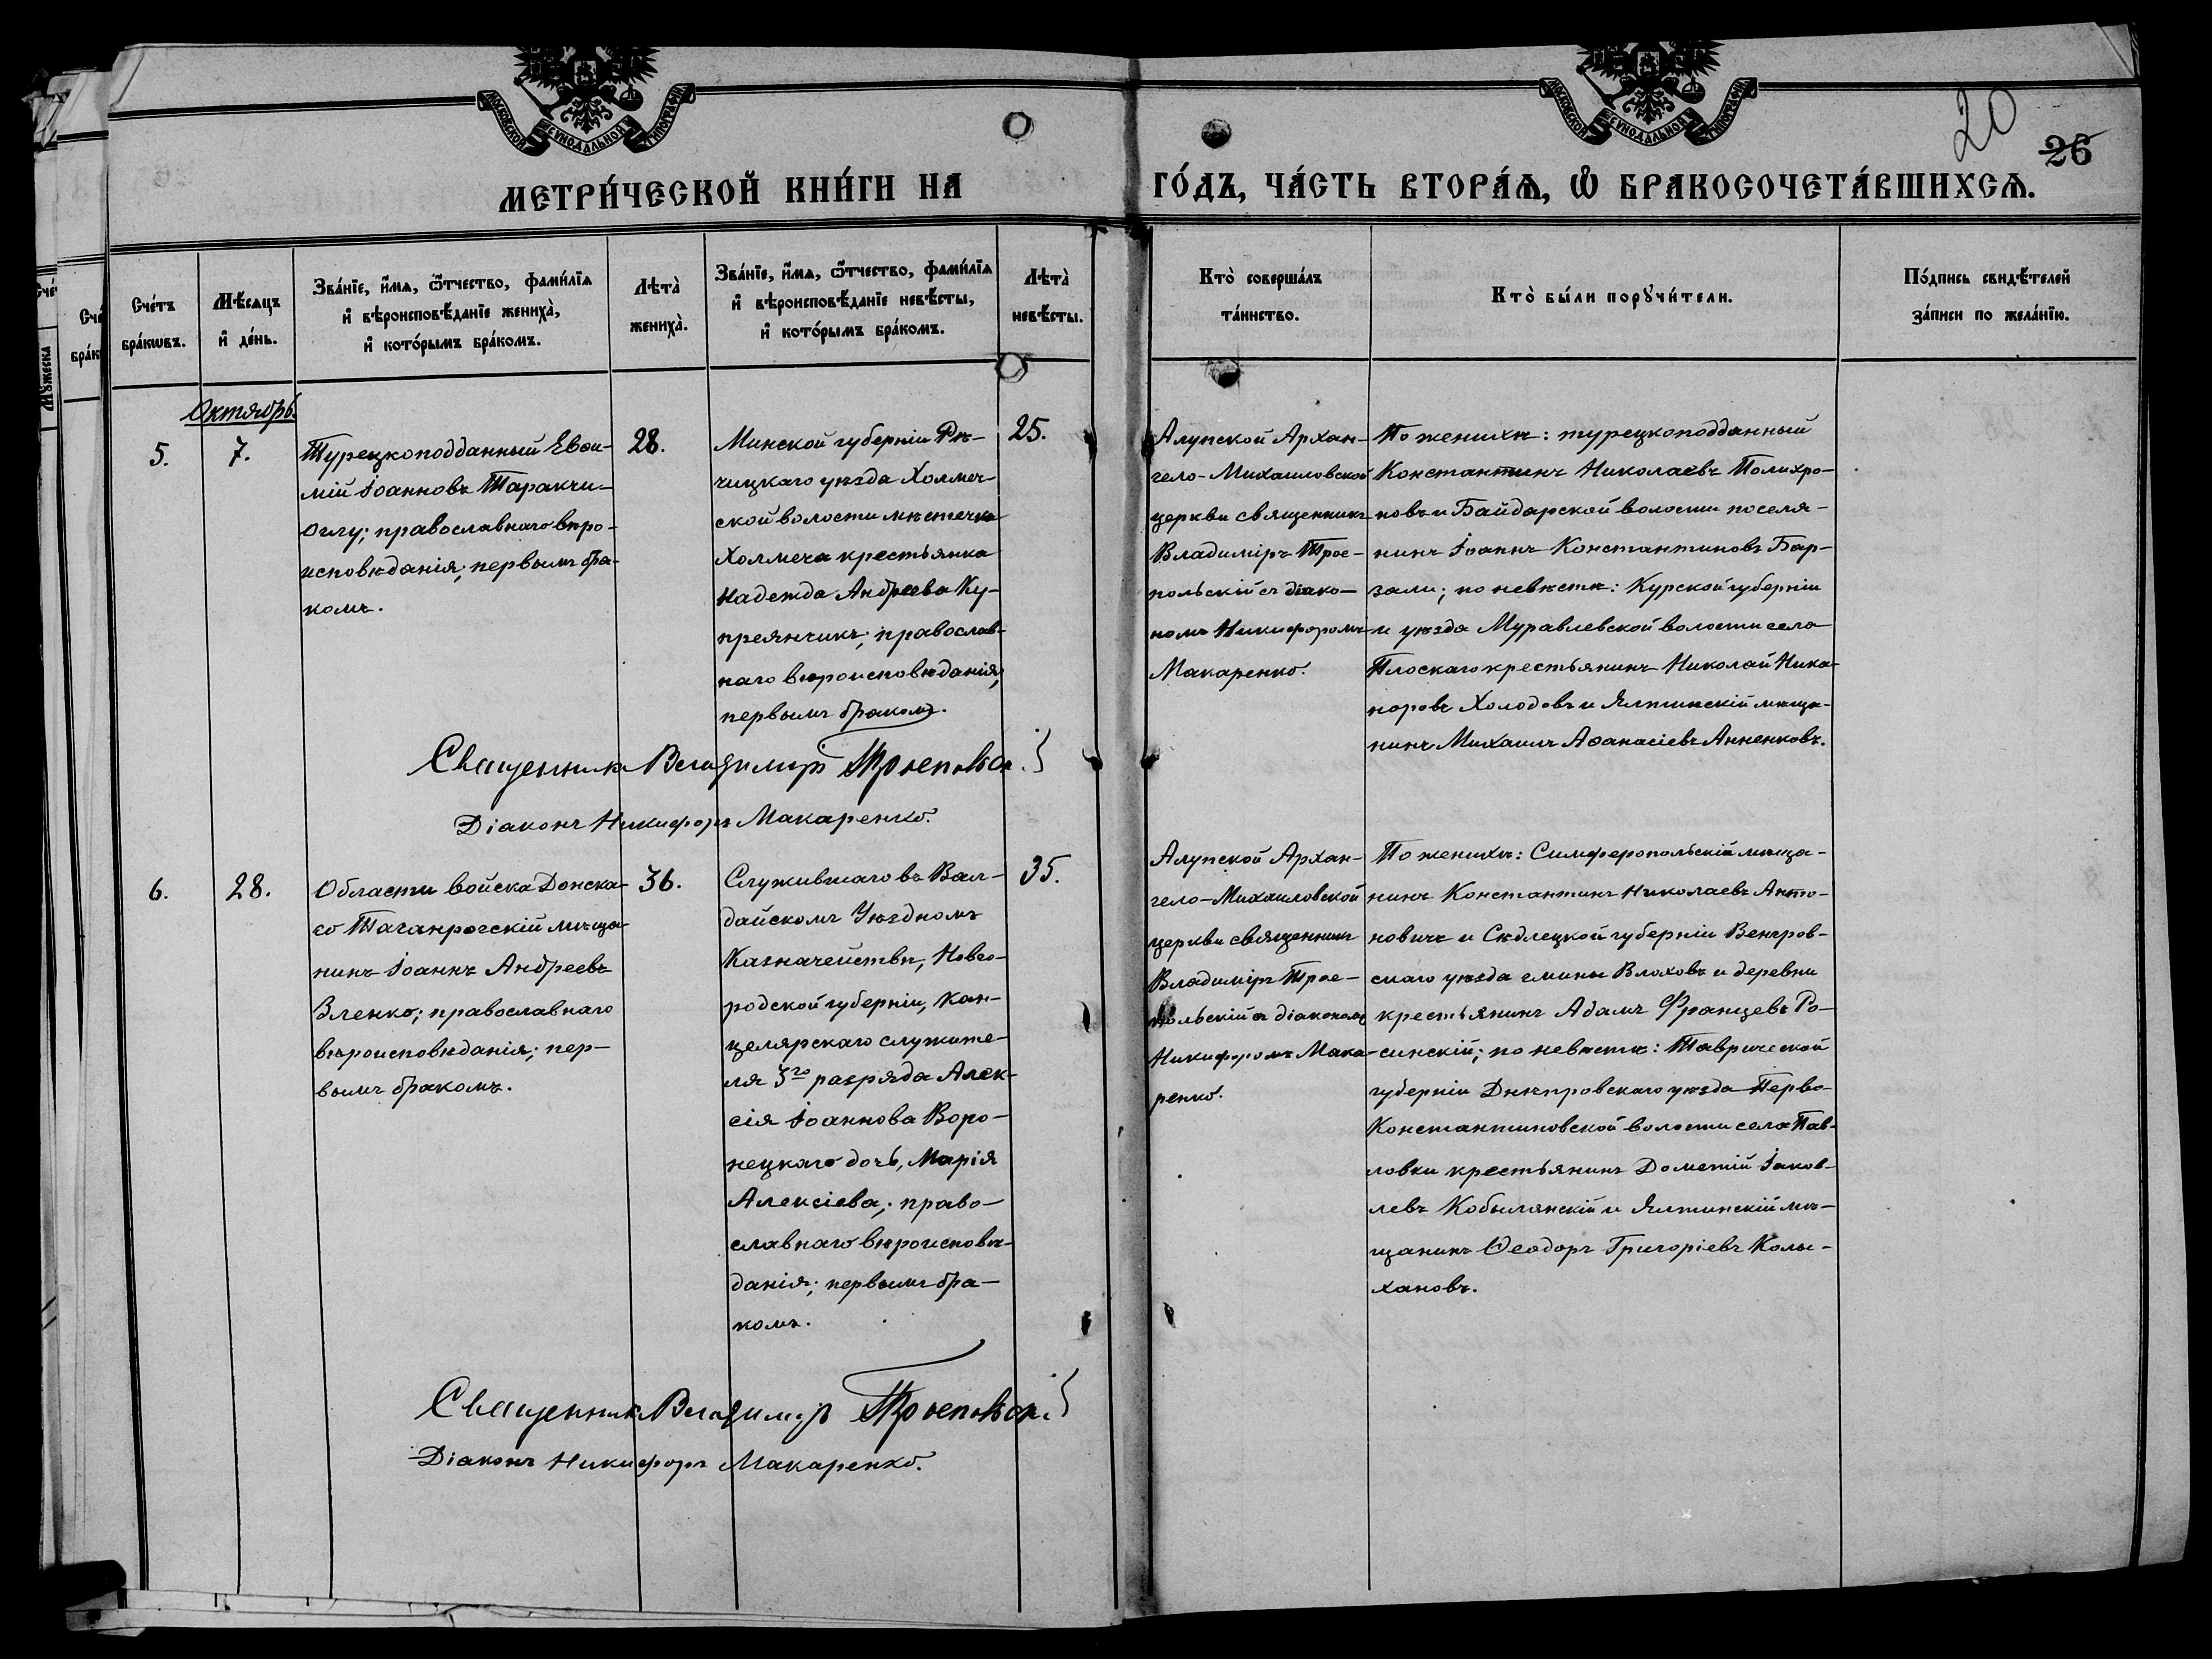 МОСКОВСКОЙ СѴНОДАЛЬНОЙ ТИПОГРАФІИ
МОСКОВСКОЙ СѴНОДАЛЬНОЙ ТИПОГРАФІИ
20
26
МЕТРИ́ЧЕСКОЙ КНИ́ГИ НА
ГО́ДЪ, ЧА́СТЬ ВТОРА́Ѧ, Ѡ҆ БРАКОСОЧЕТА́ВШИХСѦ.
Сче́тъ
бра́кѡвъ.
Мѣ́сѧцъ
и҆ де́нь.
Зва́нїе, и҆́мѧ, ѻ҆́тчество, фами́лїѧ
и҆ вѣроисповѣ́данїе жениха̀,
и҆ кото́рымъ бра́комъ.
Лѣта̀
жениха̀.
Зва́нїе, и҆́мѧ, ѻ҆́тчество, фами́лїѧ
и҆ вѣроисповѣ́данїе невѣ́сты,
и҆ кото́рымъ бра́комъ.
Лѣта̀
невѣ́сты.
Кто̀ соверша́лъ
та́инство.
Кто̀ бы́ли порꙋчи́тели.
По́дпись свидѣ́телей
за́писи по жела́нїю.
Октябрь.
5.
7.
Турецкоподданный Евѳи-
мій Іоанновъ Таракчи-
оглу; православнаго вѣро-
исповѣданія; первымъ бра-
комъ.
28.
Минской губерніи Рѣ-
чицкаго уѣзда Холмеч-
ской волости мѣстечка
Холмеча крестьянка
Надежда Андреева Ку-
преянчикъ; православ-
наго вѣроисповѣданія;
первымъ бракомъ.
25.
Алупской Архан-
гело-Михаиловской
церкви священникъ
Владиміръ Трое-
польскій съ діако-
номъ Никифоромъ
Макаренко.
По женихѣ: турецкоподданный
Константинъ Николаевъ Полихро-
новъ и Байдарской волости поселя-
нинъ Іоаннъ Константиновъ Бар-
зали; по невѣстѣ: Курской губерніи
и уѣзда Муравлевской волости села
Плоскаго крестьянинъ Николай Ника-
норовъ Холодовъ и Ялтинскій мѣща-
нинъ Михаилъ Аѳанасіевъ Анненковъ.
Священникъ Владиміръ Троепольск.
Діаконъ Никифоръ Макаренко.
6.
28.
Области войска Донска-
го Таганрогскій мѣща-
нинъ Іоаннъ Андреевъ
Зленко; православнаго
вѣроисповѣданія; пер-
вымъ бракомъ.
36.
Служившаго въ Вал-
дайскомъ Уѣздномъ
Казначействѣ, Новго-
родской губерніи, кан-
целярскаго служите-
ля 3го разряда Алек-
сія Іоаннова Воро-
нецкаго дочь, Марія
Алексіева; право-
славнаго вѣроисповѣ-
данія; первымъ бра-
комъ.
35.
Алупской Архан-
гело-Михаиловской
церкви священникъ
Владиміръ Трое-
польскій съ діакономъ
Никифоромъ Мака-
ренко.
По женихѣ: Симферопольскій мѣща-
нинъ Константинъ Николаевъ Анто-
новичъ и Сѣдлецкой губерніи Венгров-
скаго уѣзда гмины Влоховъ и деревни
крестьянинъ Адамъ Францевъ Ро-
синскій; по невѣстѣ: Таврической
губерніи Днѣпровскаго уѣзда Перво-
Константиновской волости села Пав-
ловки крестьянинъ Дометій Іаков-
левъ Кобылянскій и Ялтинскій мѣ-
щанинъ Ѳеодоръ Григоріевъ Колы-
хановъ.
Священникъ Владиміръ Троепольск.
Діаконъ Никифоръ Макаренко.